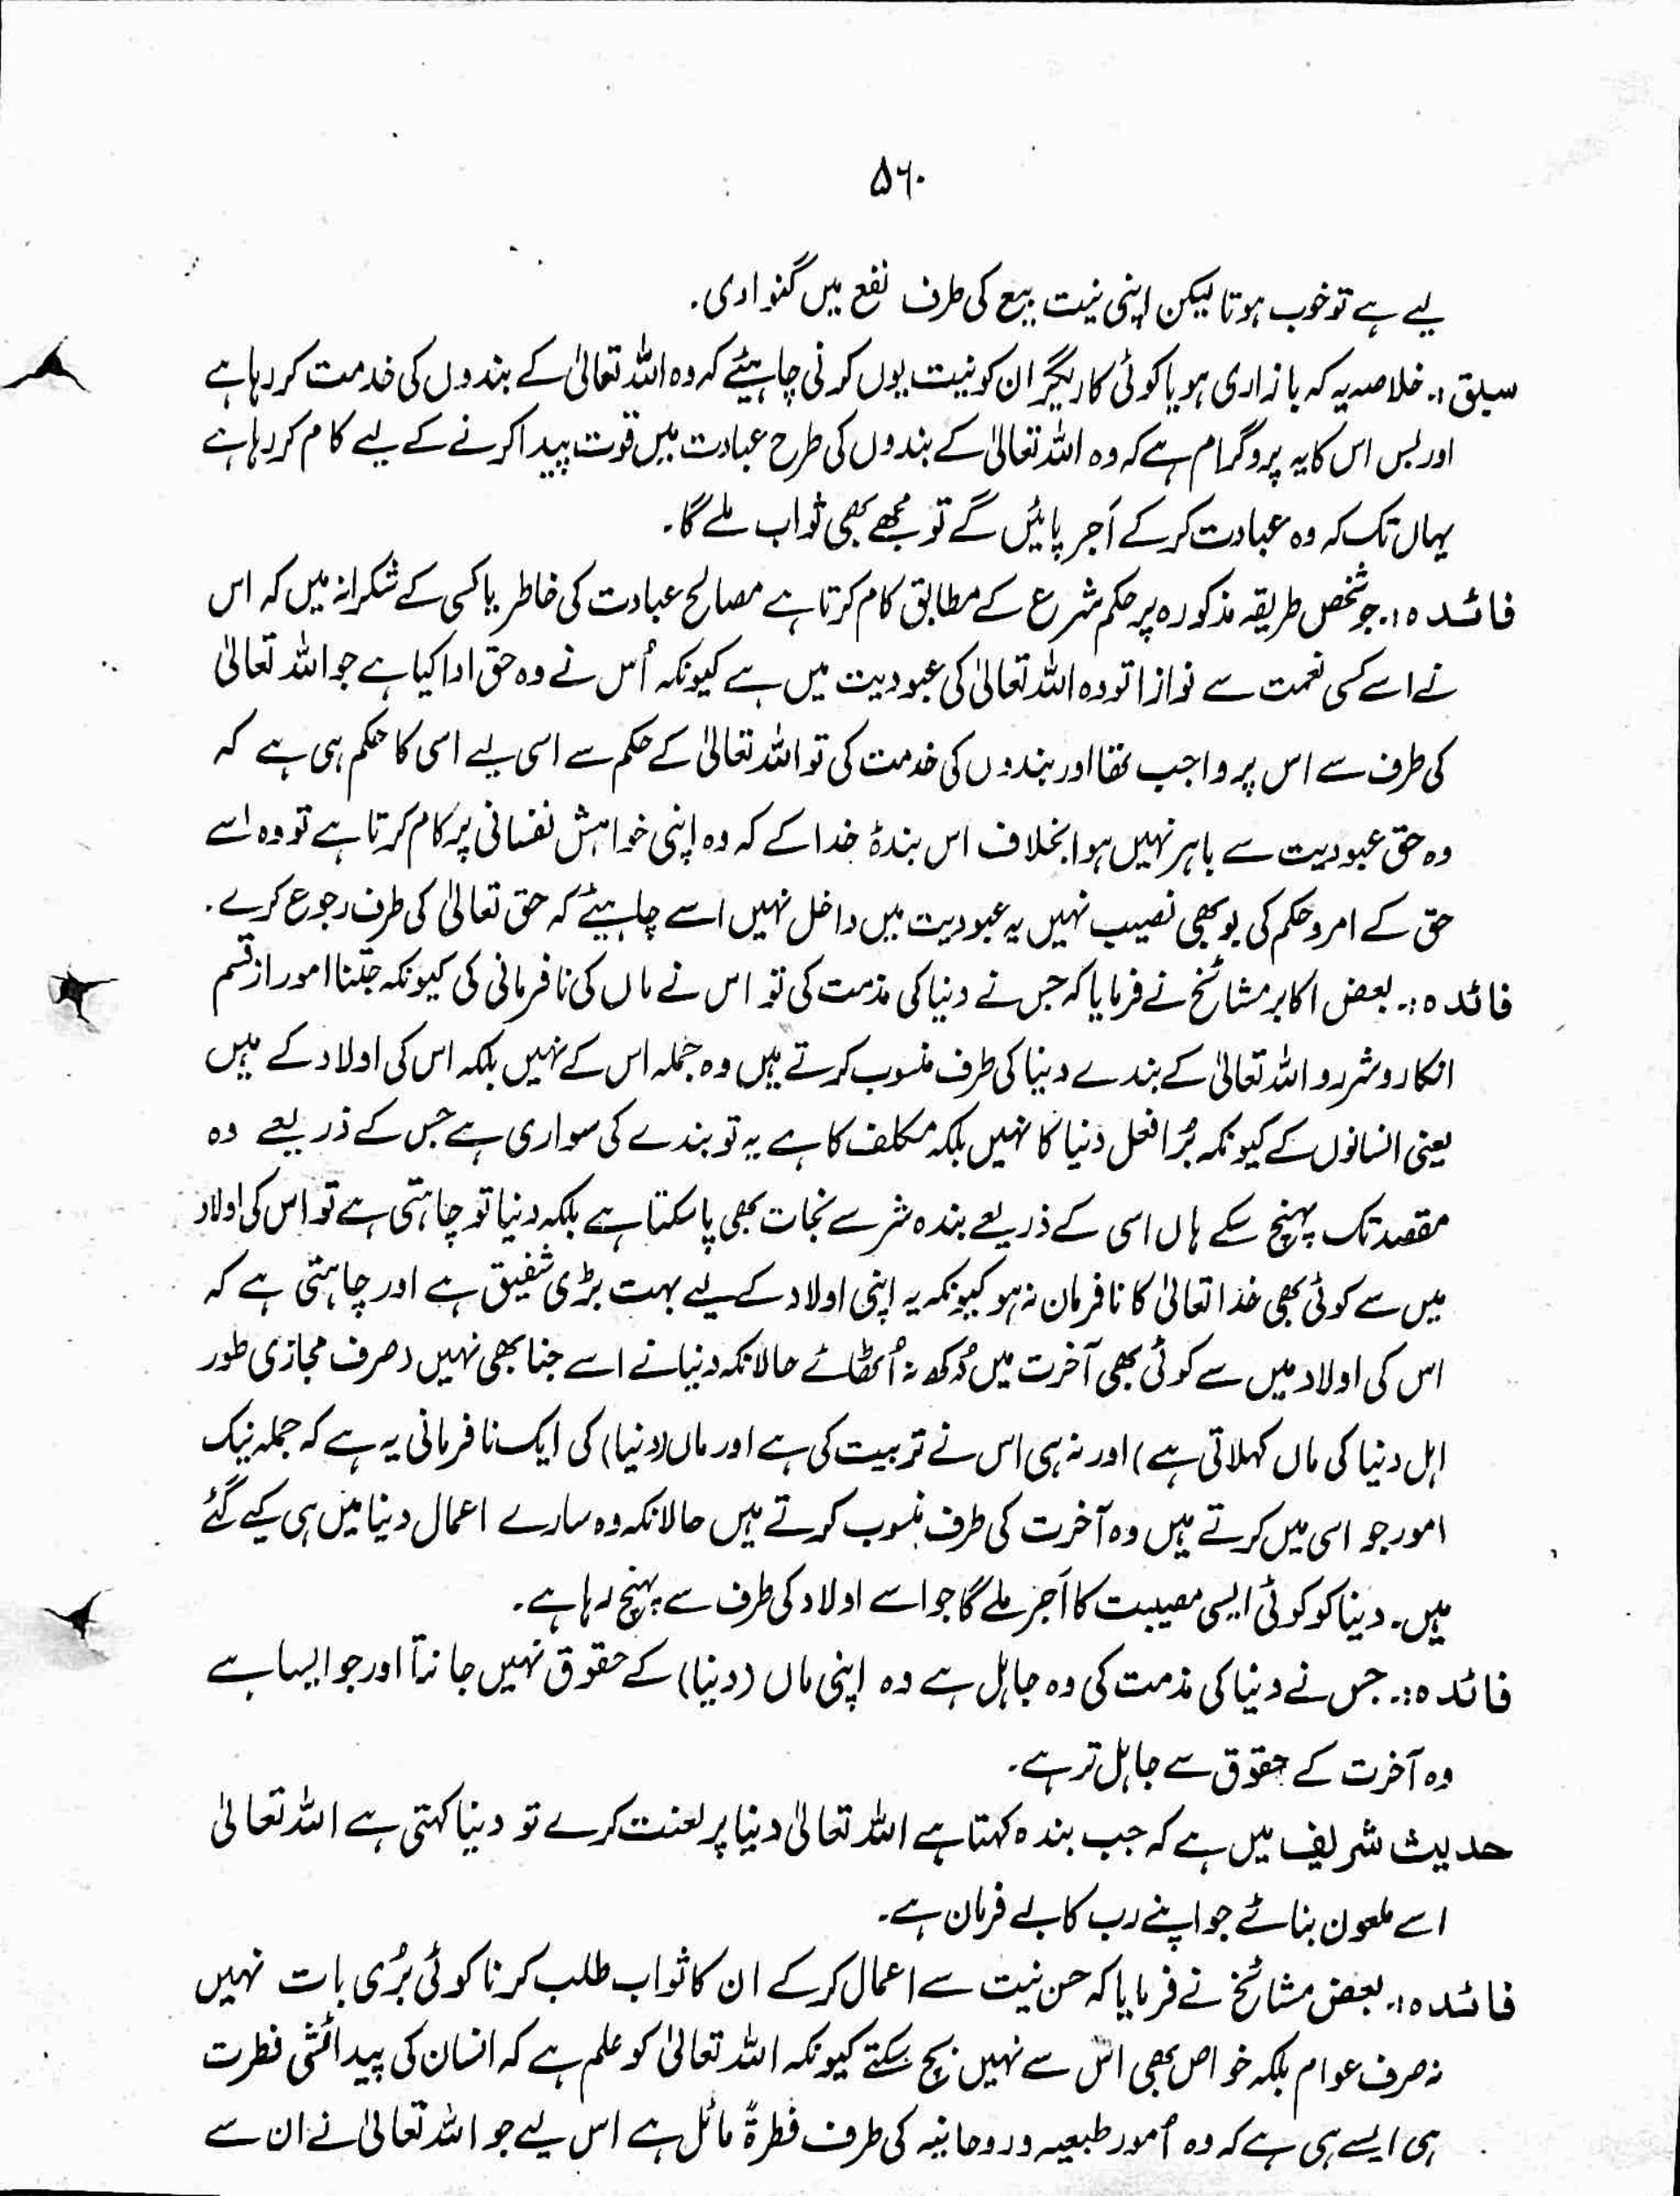 ۵۶۰
لیے ہے تو خوب ہوتا لیکن اپنی نیت بیع کی طرف نفع میں گنوا دی۔
سبق :۔ خلاصہ یہ کہ بازاری ہو یا کوئی کاریگر ان کو نیت یوں کرنی چاہیئے کہ وہ اللہ تعالیٰ کے بندوں کی خدمت کر رہا ہے
اور بس اس کا یہ پروگرام ہے کہ وہ اللہ تعالیٰ کے بندوں کی طرح عبادت میں قوت پیدا کرنے کے لیے کام کر رہا ہے
یہاں تک کہ وہ عبادت کر کے اَجر پائیں گے تو مجھے بھی ثواب ملے گا۔
فائدہ :۔ جو شخص طریقہ مذکورہ پر حکم شرع کے مطابق کام کرتا ہے مصالح عبادت کی خاطر یا کسی کے شکرانہ میں کہ اس
نے اسے کسی نعمت سے نوازا تو وہ اللہ تعالیٰ کی عبودیت میں ہے کیونکہ اُس نے وہ حق ادا کیا ہے جو اللہ تعالیٰ
کی طرف سے اس پر واجب تھا اور بندوں کی خدمت کی تو اللہ تعالیٰ کے حکم سے اسی لیے اسی کا حکم ہی ہے کہ
وہ حق عبودیت سے باہر نہیں ہوا بخلاف اس بندۂ خدا کے کہ وہ اپنی خواہش نفسانی پر کام کرتا ہے تو وہ اسے
حق کے امر و حکم کی بو بھی نصیب نہیں یہ عبودیت میں داخل نہیں اسے چاہیئے کہ حق تعالیٰ کی طرف رجوع کرے۔
فائدہ :۔ بعض اکابر مشائخ نے فرمایا کہ جس نے دنیا کی مذمت کی تو اس نے ماں کی نافرمانی کی کیونکہ جتنا امور از قسم
انکار و شرور اللہ تعالیٰ کے بندے دنیا کی طرف منسوب کرتے ہیں وہ جملہ اس کے نہیں بلکہ اس کی اولاد کے ہیں
یعنی انسانوں کے کیونکہ بُرا فعل دنیا کا نہیں بلکہ مکلف کا ہے یہ تو بندے کی سواری ہے جس کے ذریعے وہ
مقصد تک پہنچ سکے ہاں اسی کے ذریعے بندہ شر سے نجات بھی پا سکتا ہے بلکہ دنیا تو چاہتی ہے تو اس کی اولاد
میں سے کوئی بھی خدا تعالیٰ کا نافرمان نہ ہو کیونکہ یہ اپنی اولاد کے لیے بہت بڑی شفیق ہے اور چاہتی ہے کہ
اس کی اولاد میں سے کوئی بھی آخرت میں دُکھ نہ اُٹھائے حالانکہ دنیا نے اسے جنا بھی نہیں (صرف مجازی طور
اہل دنیا کی ماں کہلاتی ہے) اور نہ ہی اس نے تربیت کی ہے اور ماں (دنیا) کی ایک نافرمانی یہ ہے کہ جملہ نیک
امور جو اسی میں کرتے ہیں وہ آخرت کی طرف منسوب کرتے ہیں حالانکہ وہ سارے اعمال دنیا میں ہی کیے گئے
ہیں۔ دنیا کو کوئی ایسی مصیبت کا اَجر ملے گا جو اسے اولاد کی طرف سے پہنچ رہا ہے۔
فائدہ :۔ جس نے دنیا کی مذمت کی وہ جاہل ہے وہ اپنی ماں (دنیا) کے حقوق نہیں جانتا اور جو ایسا ہے
وہ آخرت کے حقوق سے جاہل تر ہے۔
حدیث شریف میں ہے کہ جب بندہ کہتا ہے اللہ تعالیٰ دنیا پر لعنت کرے تو دنیا کہتی ہے اللہ تعالیٰ
اسے ملعون بنائے جو اپنے رب کا بے فرمان ہے۔
فائدہ :۔ بعض مشائخ نے فرمایا کہ حسن نیت سے اعمال کر کے ان کا ثواب طلب کرنا کوئی بُری بات نہیں
نہ صرف عوام بلکہ خواص بھی اس سے نہیں بچ سکتے کیونکہ اللہ تعالیٰ کو علم ہے کہ انسان کی پیدائشی فطرت
ہی ایسے ہی ہے کہ وہ اُمور طبعیہ و روحانیہ کی طرف فطرۃً مائل ہے اس لیے جو اللہ تعالیٰ نے ان سے